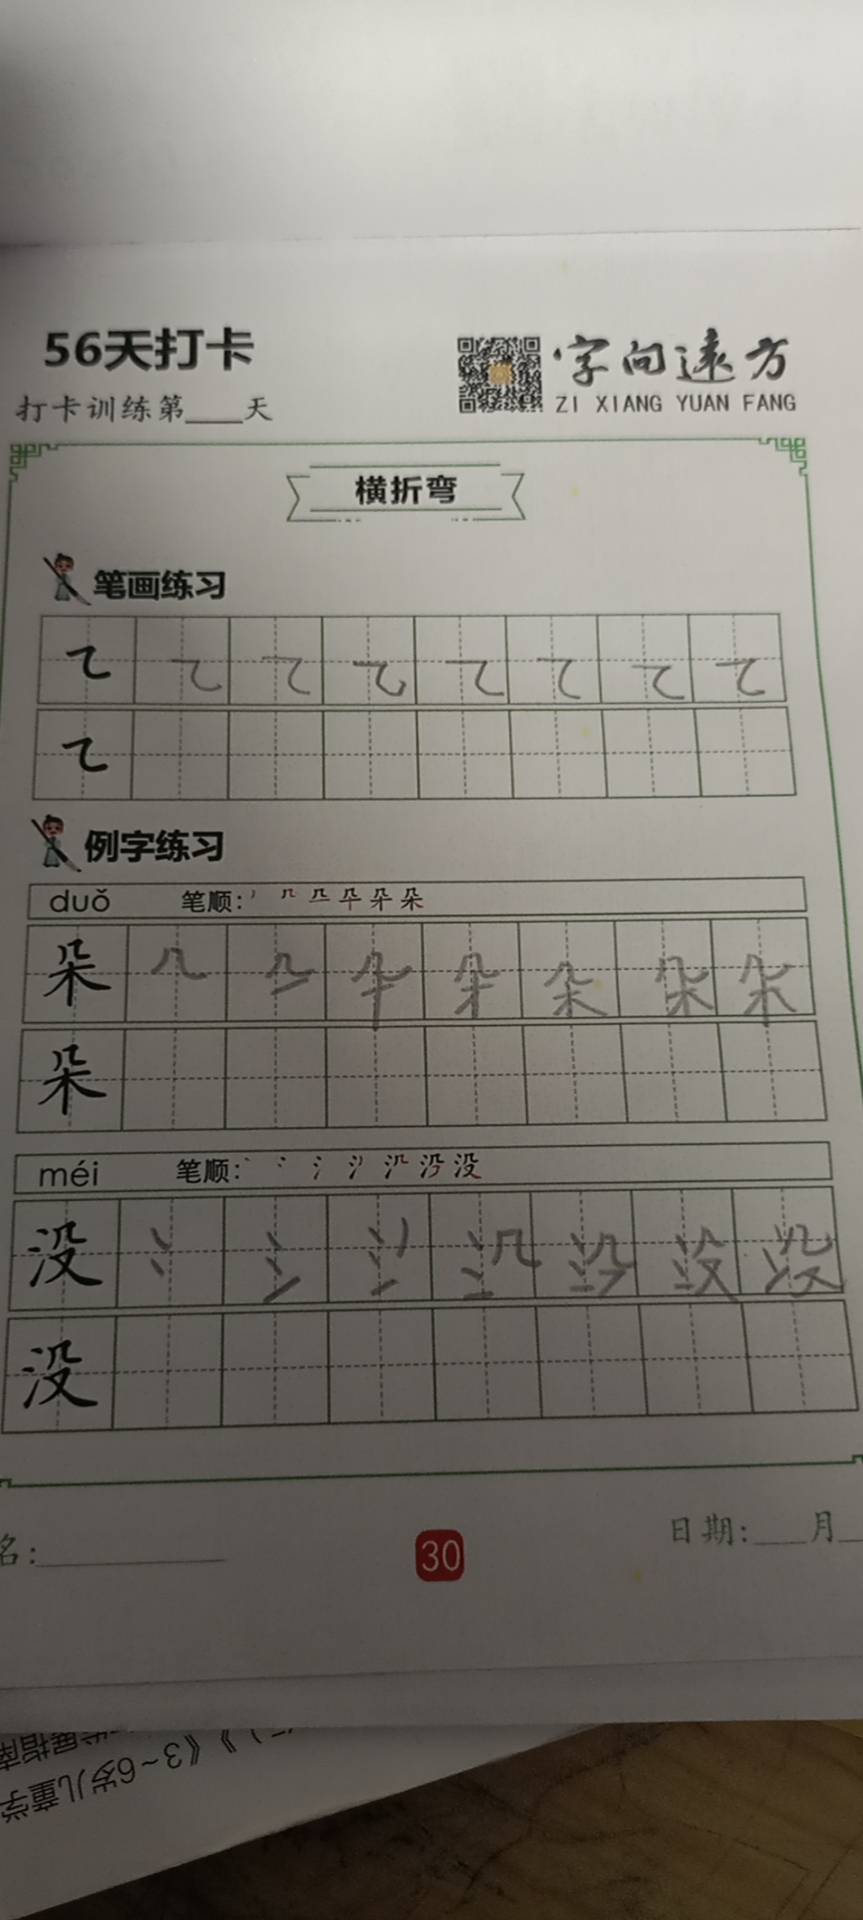 56天打卡
字向远方
打卡训练第____天
ZI XIANG YUAN FANG
横折弯
笔画练习
例字练习
duǒ 笔顺:
朵 朵 朵 朵
朵
méi 笔顺:
没 没 没
没
名:__________
30
日期:___月__
3~6岁儿童学